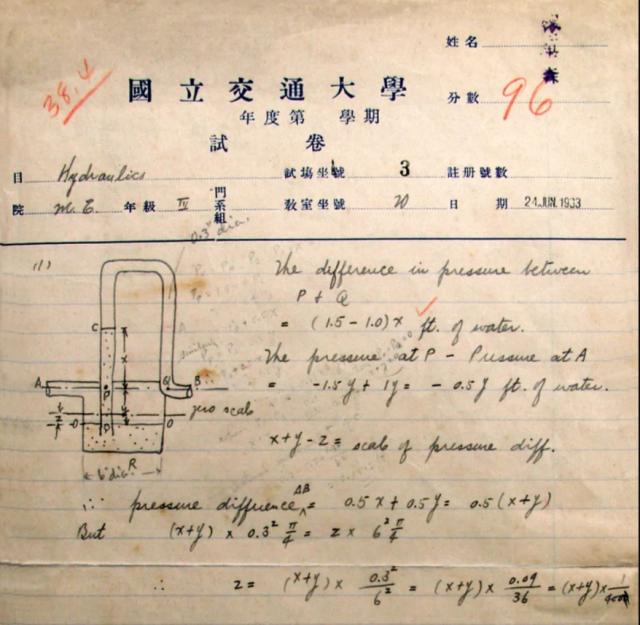 姓名
38.4
國立交通大學
分數 96
年度第 學期
試卷
目 Hydraulics 試場坐號 3 註册號數
院 M.E. 年級 IV 門系組 教室坐號 20 日期 24 JUN. 1933
0.3" dia.
(1)
The difference in pressure between
P & Q
= (1.5 - 1.0)x ft. of water.
The pressure at P - Pressure at A
= -1.5y + 1y = -0.5y ft. of water.
x+y-z = scale of pressure diff.
C
x
A
P
Q
B
y
zero scale
z
O
D
O
R
6" dia.
∴ pressure difference AB = 0.5x + 0.5y = 0.5(x+y)
But (x+y) × 0.3² π/4 = z × 6² π/4
∴ z = (x+y) × 0.3²/6² = (x+y) × 0.09/36 = (x+y) × 1/400